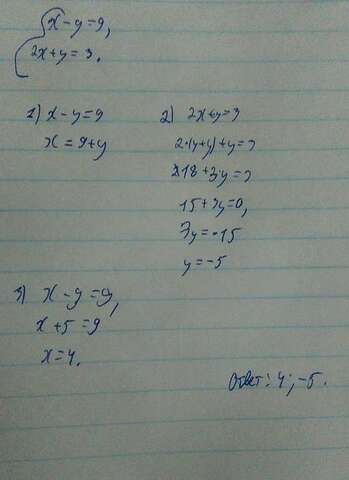 { x - y = 9,
2x + y = 3.
1) x - y = 9
x = 9 + y
2) 2x + y = 3
2·(9+y) + y = 3
18 + 3y = 3
15 + 3y = 0,
3y = -15
y = -5
3) x - y = 9,
x + 5 = 9
x = 4.
Ответ: 4; -5.